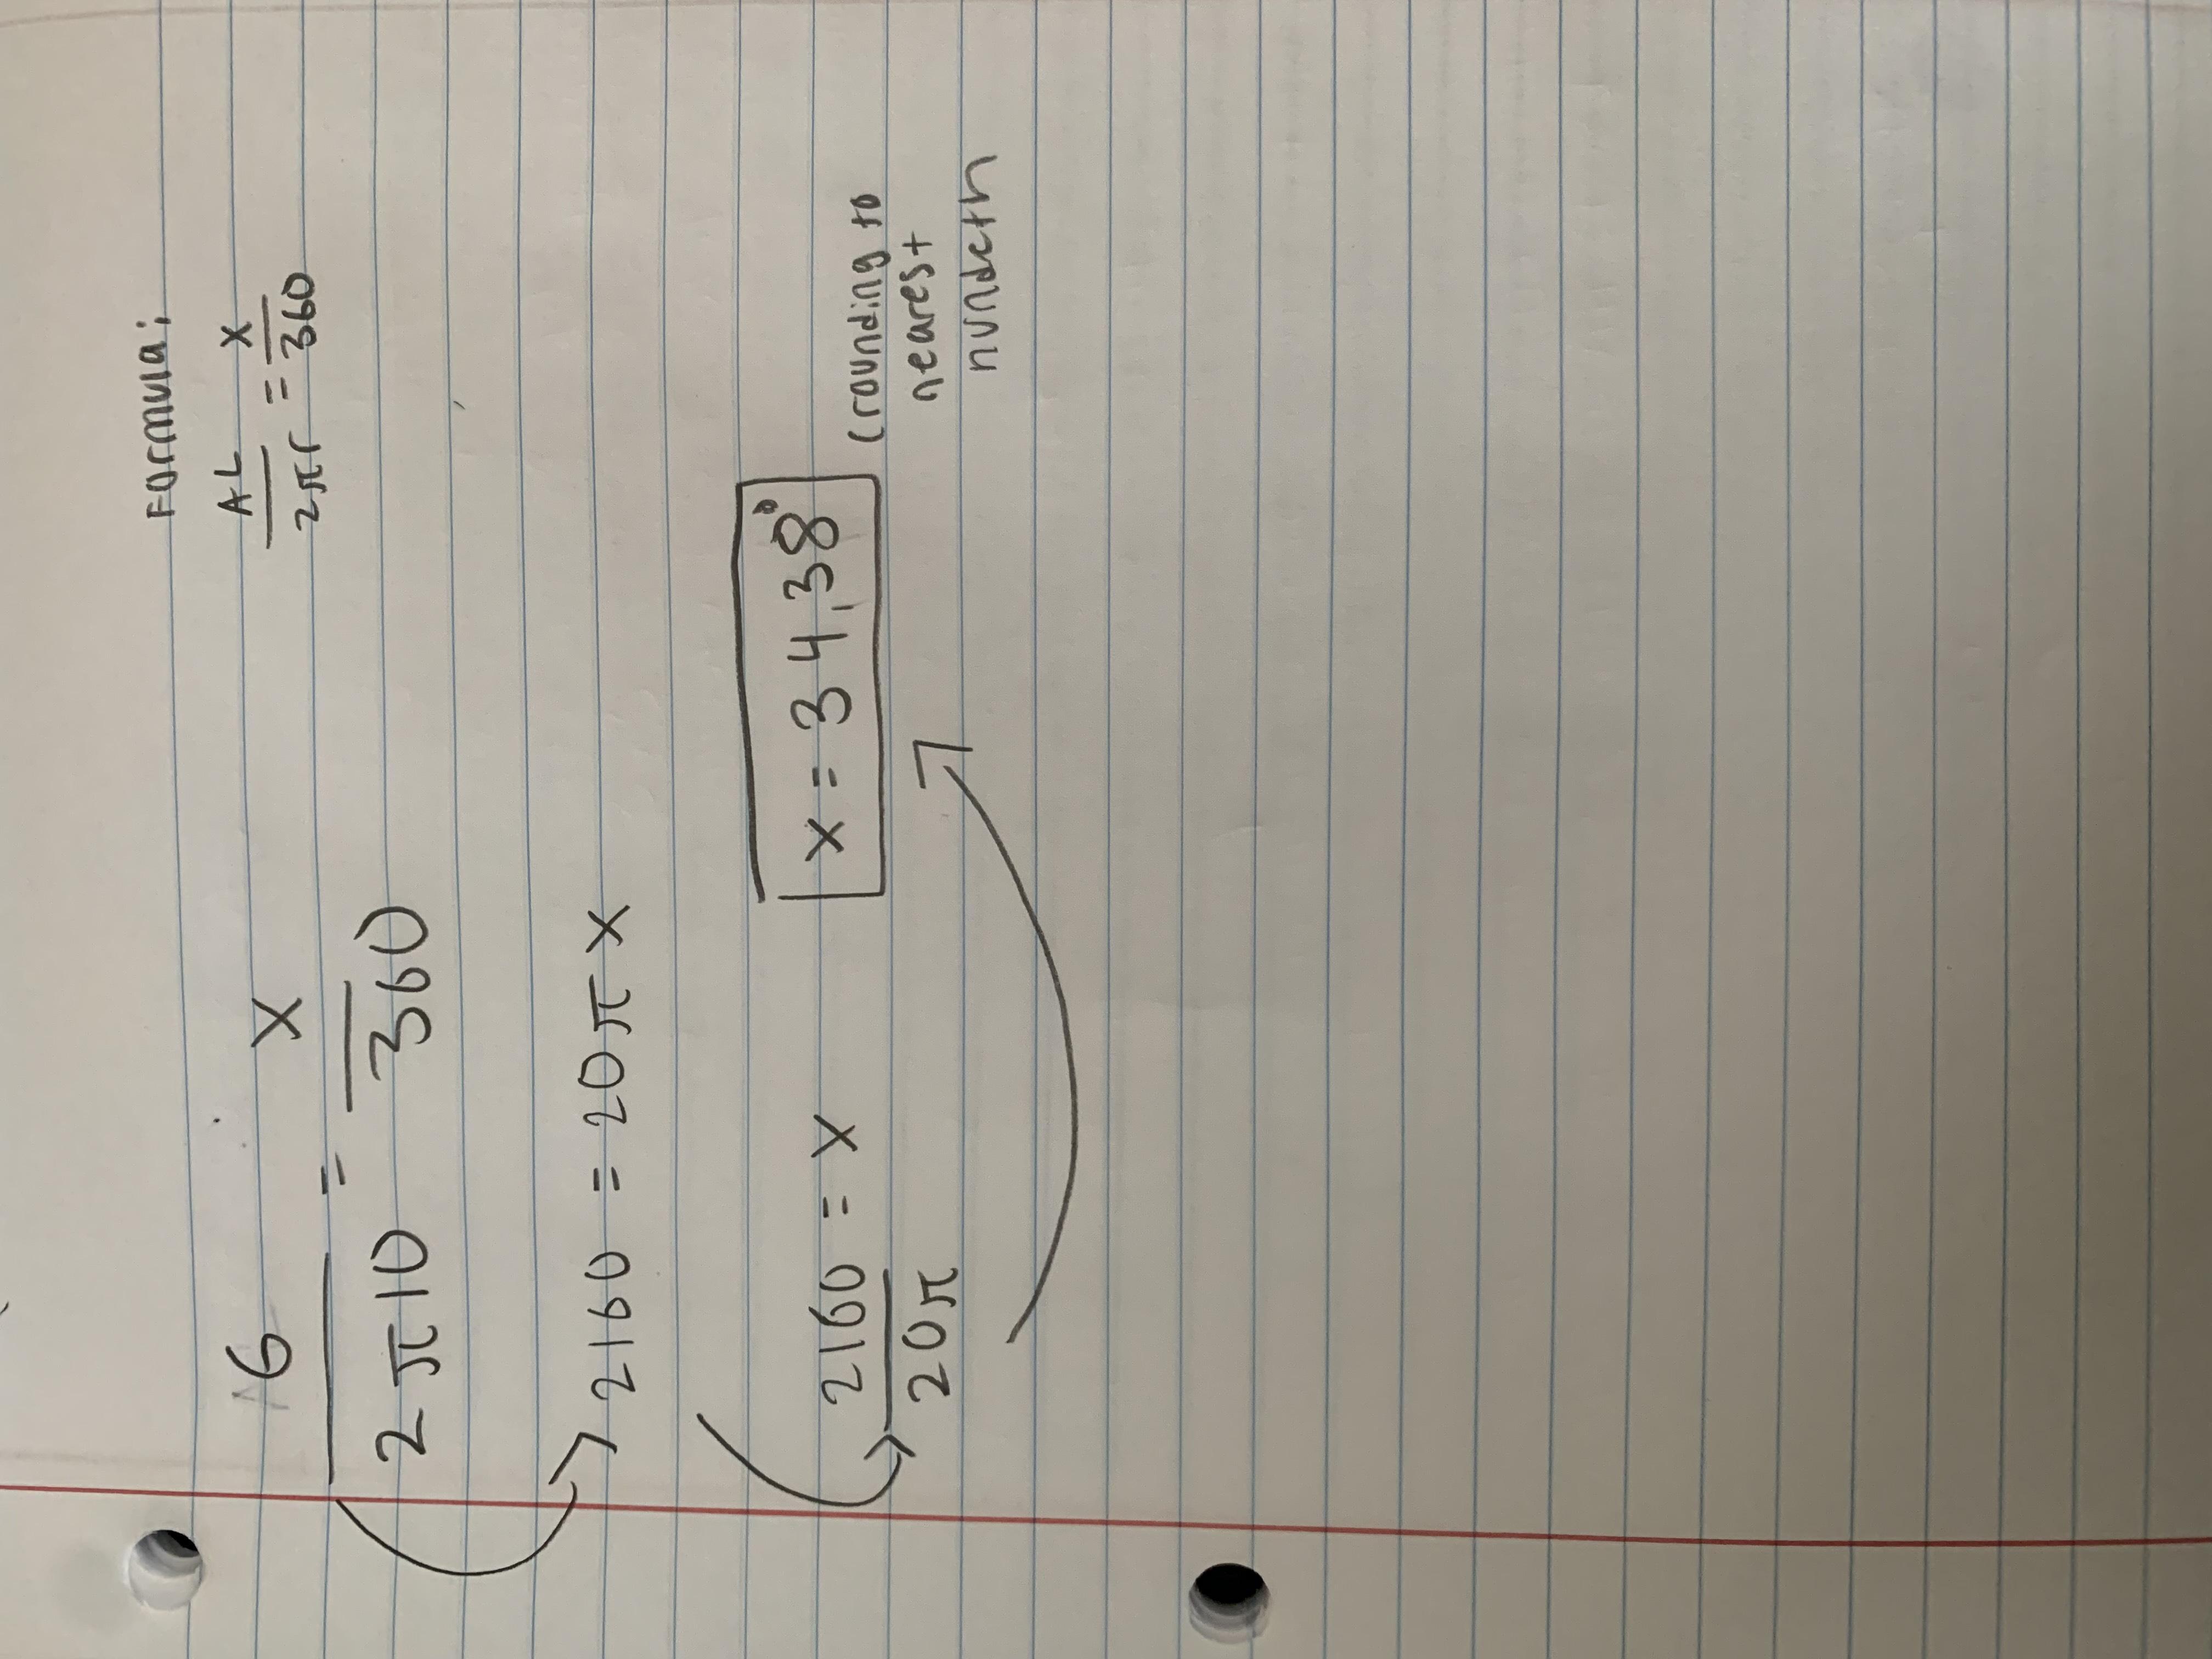 Formula:
AL/2πr = x/360
6/2π10 = x/360
2160 = 20πx
2160/20π = x
x = 34.38°
(rounding to
nearest
hundeth